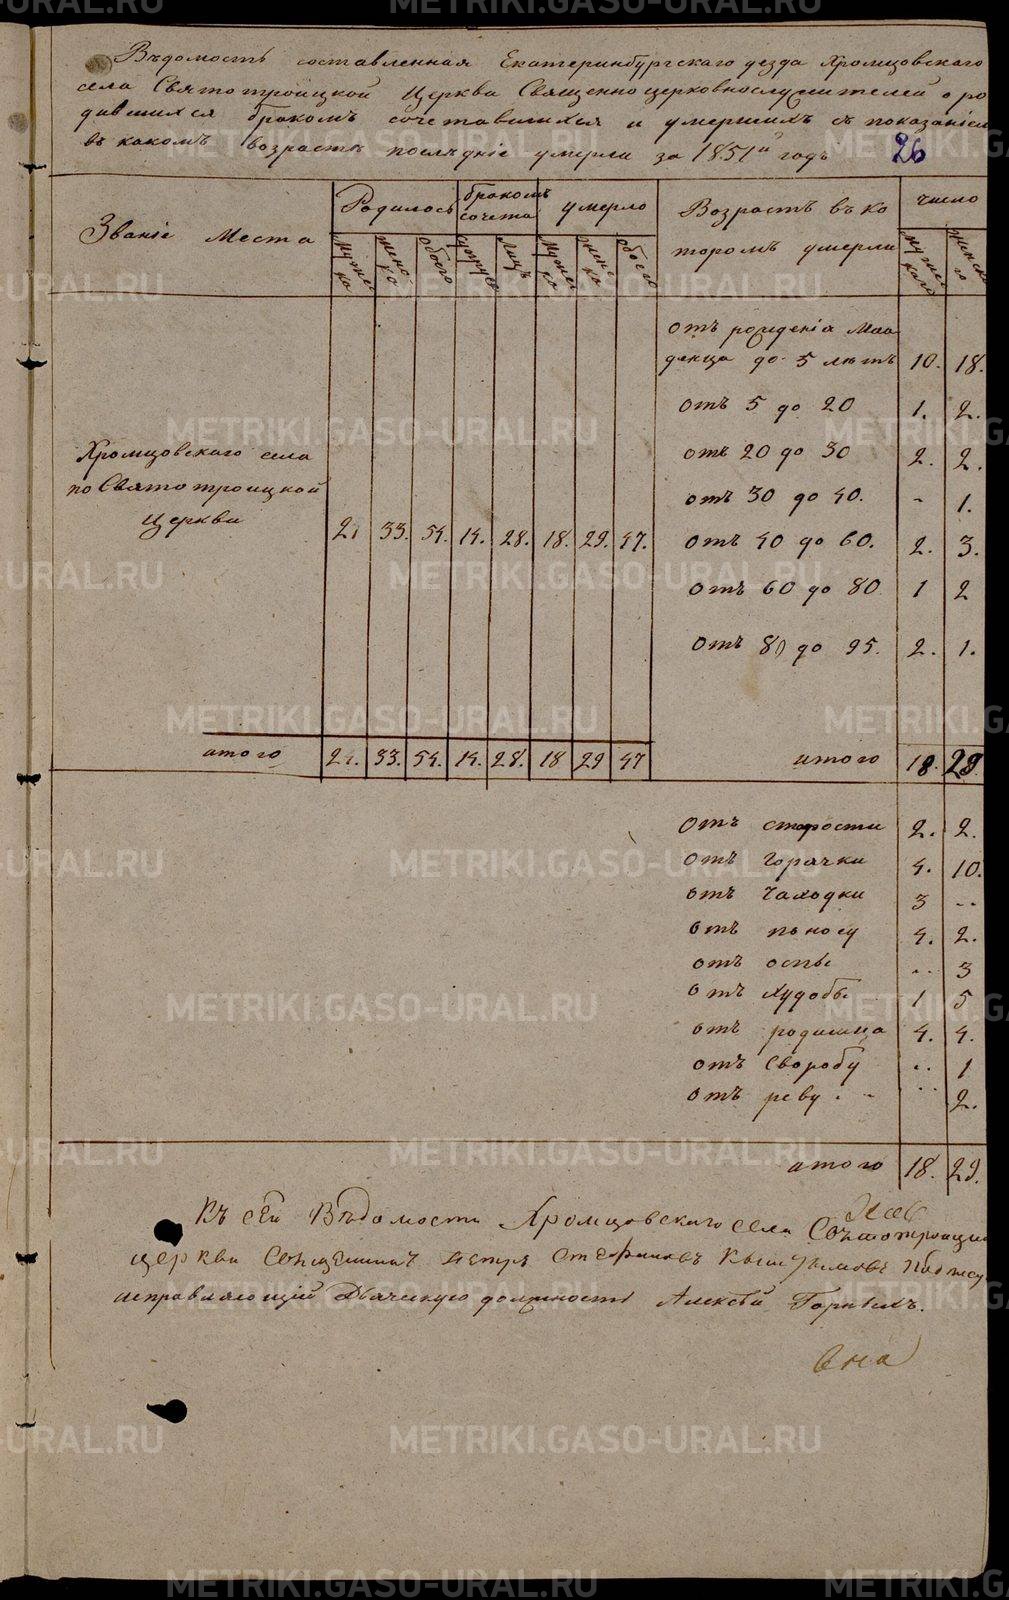 Вѣдомость составленная Екатеринбургскаго уезда Хромцовскаго
села Святотроицкой Церкви Священноцерковнослужителей о ро
дившихся бракомъ сочетавшихся и умершихъ съ показаніемъ
въ какомъ возрастѣ послѣдніе умерли за 1851й годъ 26
Званіе Места
Родилось бракомъ сочета умерло
Мужеска Женска обоего супруг Лицъ Мужеска Женска обоего
Возрастъ въ ко
торомъ умерли
число
мужескаго Женскаго
отъ рожденія Мла
денца до 5 лѣтъ 10. 18.
отъ 5 до 20 1. 2.
отъ 20 до 30 2. 2.
отъ 30 до 40. - 1.
отъ 40 до 60. 2. 3.
отъ 60 до 80 1 2
отъ 80 до 95. 2. 1.
Хромцовскаго села
по Святотроицкой
Церкви 21 33. 54. 14. 28. 18. 29. 47.
итого 21. 33. 54. 14. 28. 18 29 47
итого 18. 29
отъ старости 2. 2.
отъ горячки 4. 10.
отъ чаходки 3 --
отъ поносу 4. 2.
отъ оспы .. 3
отъ худобы 1 5
отъ родимца 4. 4.
отъ своробу .. 1
отъ реву . - .. 2.
итого 18. 29.
Къ сей Вѣдомости Хромцовскаго села Святотроицкой
церкви Священникъ Петръ Стефановъ
исправляющій Дьяческую должность Алексѣй Горныхъ.
METRIKI.GASO-URAL.RU